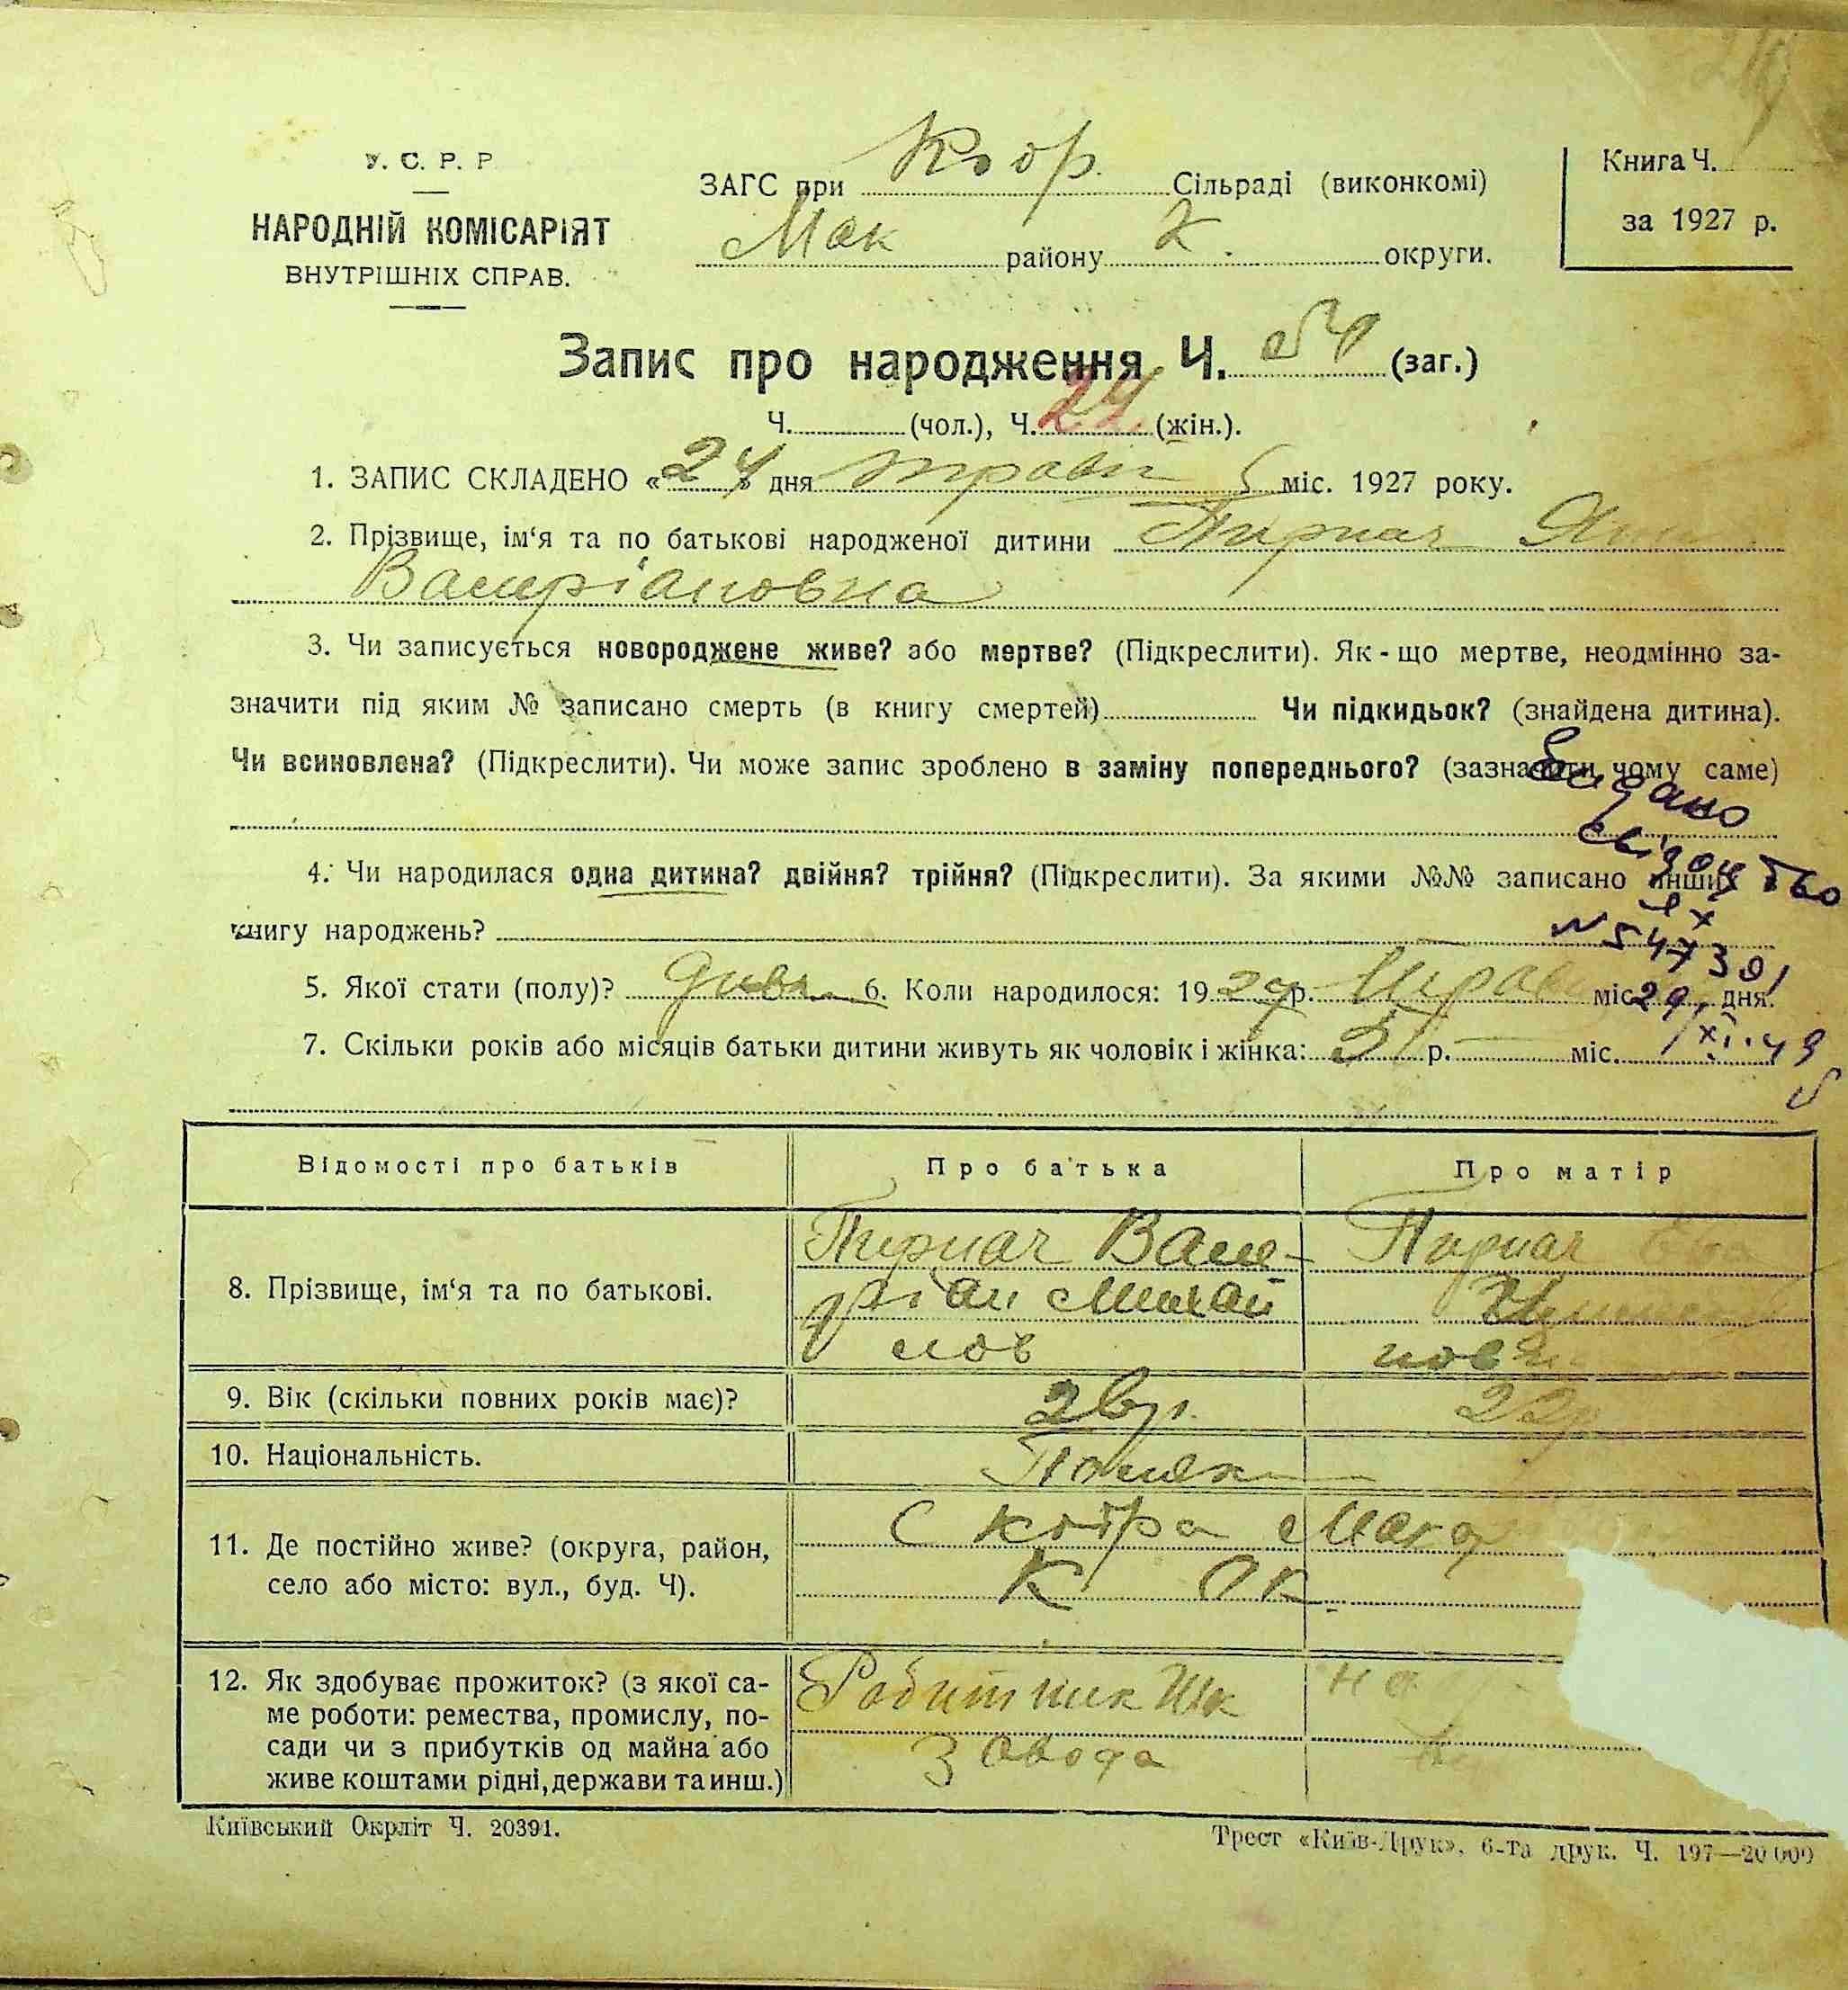 У. С. Р. Р
НАРОДНІЙ КОМІСАРІЯТ
ВНУТРІШНІХ СПРАВ.
ЗАГС при Сільраді (виконкомі)
Мак району К. округи.
Книга Ч.
за 1927 р.
Запис про народження Ч. 54 (заг.)
Ч. (чол.), Ч. 24 (жін.).
1. ЗАПИС СКЛАДЕНО « 24 » дня травн міс. 1927 року.
2. Прізвище, ім‘я та по батькові народженої дитини Пирнач
Валеріановна
3. Чи записується новороджене живе? або мертве? (Підкреслити). Як-що мертве, неодмінно за-
значити під яким № записано смерть (в книгу смертей) Чи підкидьок? (знайдена дитина).
Чи всиновлена? (Підкреслити). Чи може запис зроблено в заміну попереднього? (зазначити чому саме)
Видано
свідоцтво
4. Чи народилася одна дитина? двійня? трійня? (Підкреслити). За якими №№ записано инших
книгу народжень?
5. Якої стати (полу)? 6. Коли народилося: 19 27 р. Трав міс. дня.
7. Скільки років або місяців батьки дитини живуть як чоловік і жінка: 5 р. — міс.
Відомості про батьків Про батька Про матір
8. Прізвище, ім‘я та по батькові.
Пирнач Вале- Пирнач
ріан Михай
лов
9. Вік (скільки повних років має)? 26 р. 22 р
10. Національність. Поляк
11. Де постійно живе? (округа, район,
село або місто: вул., буд. Ч).
С Мака
К ок.
12. Як здобуває прожиток? (з якої са-
ме роботи: ремества, промислу, по-
сади чи з прибутків од майна або
живе коштами рідні, держави та инш.)
Робитник
Завода
Київський Окрліт Ч. 20391.
Трест «Київ-Друк», 6-та друк. Ч. 197—20 000